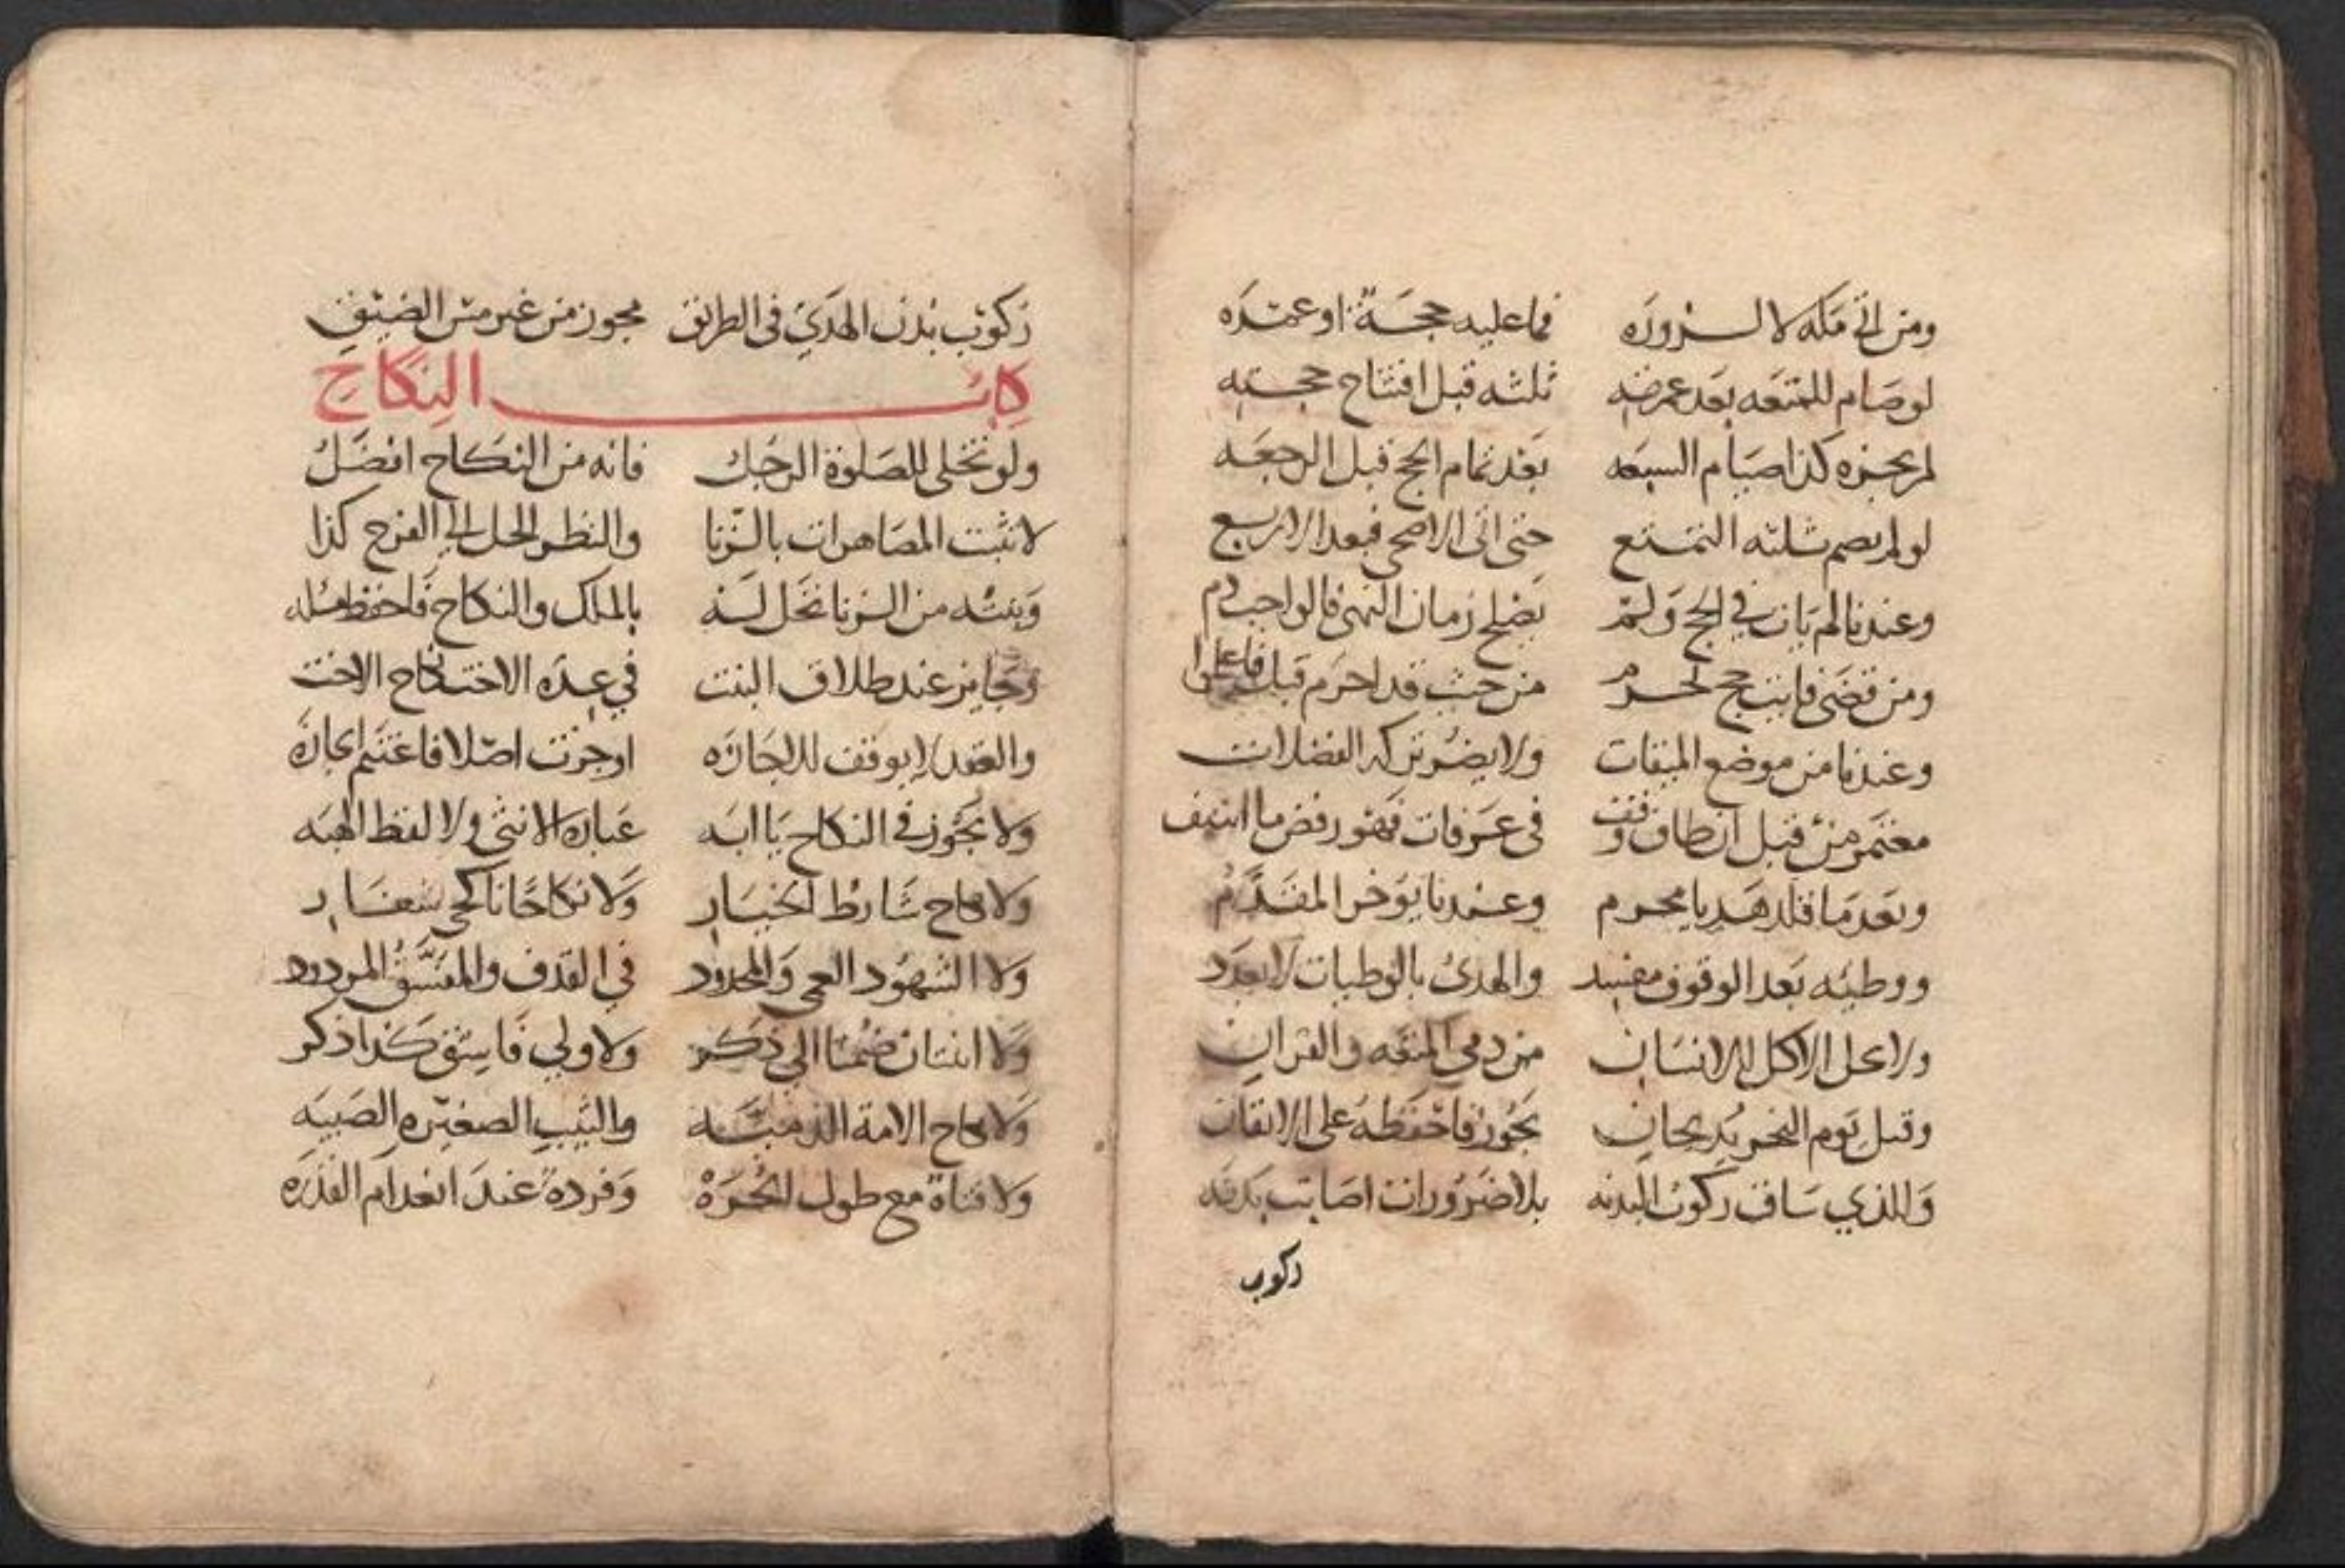 ومن اتى مكه لا لـضروره فما عليه حجة او عمره
لو صام للمتعه بعد عمرته ثلثه قبل افتتاح حجته
لم يجزه كذا صيام السبعه بعد تمام الحج قبل الرجعه
لو لم يصم ثلثه التمتع حتى اتى الاضحى فبعد الاربع
وعندنا لم يات في الحج ولم يصلح زمان النهي فالواجب دم
ومن قضى فايت حج يحرم من حيث قد احرم قبل فاعلموا
وعندنا من موضع الميقات ولا يضر تركه الفضلات
معتمر من قبل ان طاف وقف في عرفات فهو رفض ما
وبعد ما قلد هديا محرم وعندنا يوخر المقدم
ووطئه بعد الوقوف مفسد والهدى بالوطيات لا يعدد
ولا يحل الاكل للانسان من دمي المتعه والقران
وقبل يوم النحر يذبحان يجوز فاحفظه على الاتقان
وللذي ساق ركوب البدنه بلا ضرورات اصابت بدنه
ركوب
ركوب بدن الهدي في الطريق يجوز من غير مس الضيق
كتاب النكاح
ولو تخلى للصلوة الرجل فانه من النكاح افضل
لا تثبت المصاهرات بالزنا والنظر الحل الى الفرج كذا
وبنته من الزنا تحل له بالملك والنكاح فاحفظ مسله
وجايز عند طلاق البنت في عدة الاخت نكاح الاخت
والعقد لا يوقف للاجازه اوجزت اصلا فاغتنم ايجازه
ولا تجوز في النكاح يا ابه عبارة الانثى ولا لفظ الهبه
ولا نكاح شارط الخيار ولا نكاحا ناكحي شغار
ولا الشهود العمي والمحدود في القذف والمفسق المردود
ولا اثنتان ضمتا الى ذكر ولا ولي فاسق كذا ذكر
ولا نكاح الامة الذميه والثيب الصغيره الصبيه
ولا فتاة مع طول الحره وفردة عند انعدام القدره